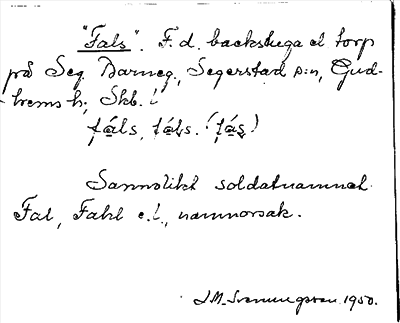 "Fals". F.d. backstuga el torp
på Seg. Barneg., Segerstad s:n, Gud-
hems h., Skb. l.
fáls, fáls. (fás)
Sannolikt soldatnamnet
Fal, Fahl e.l., namnorsak.
J M. Svenungsson 1950.